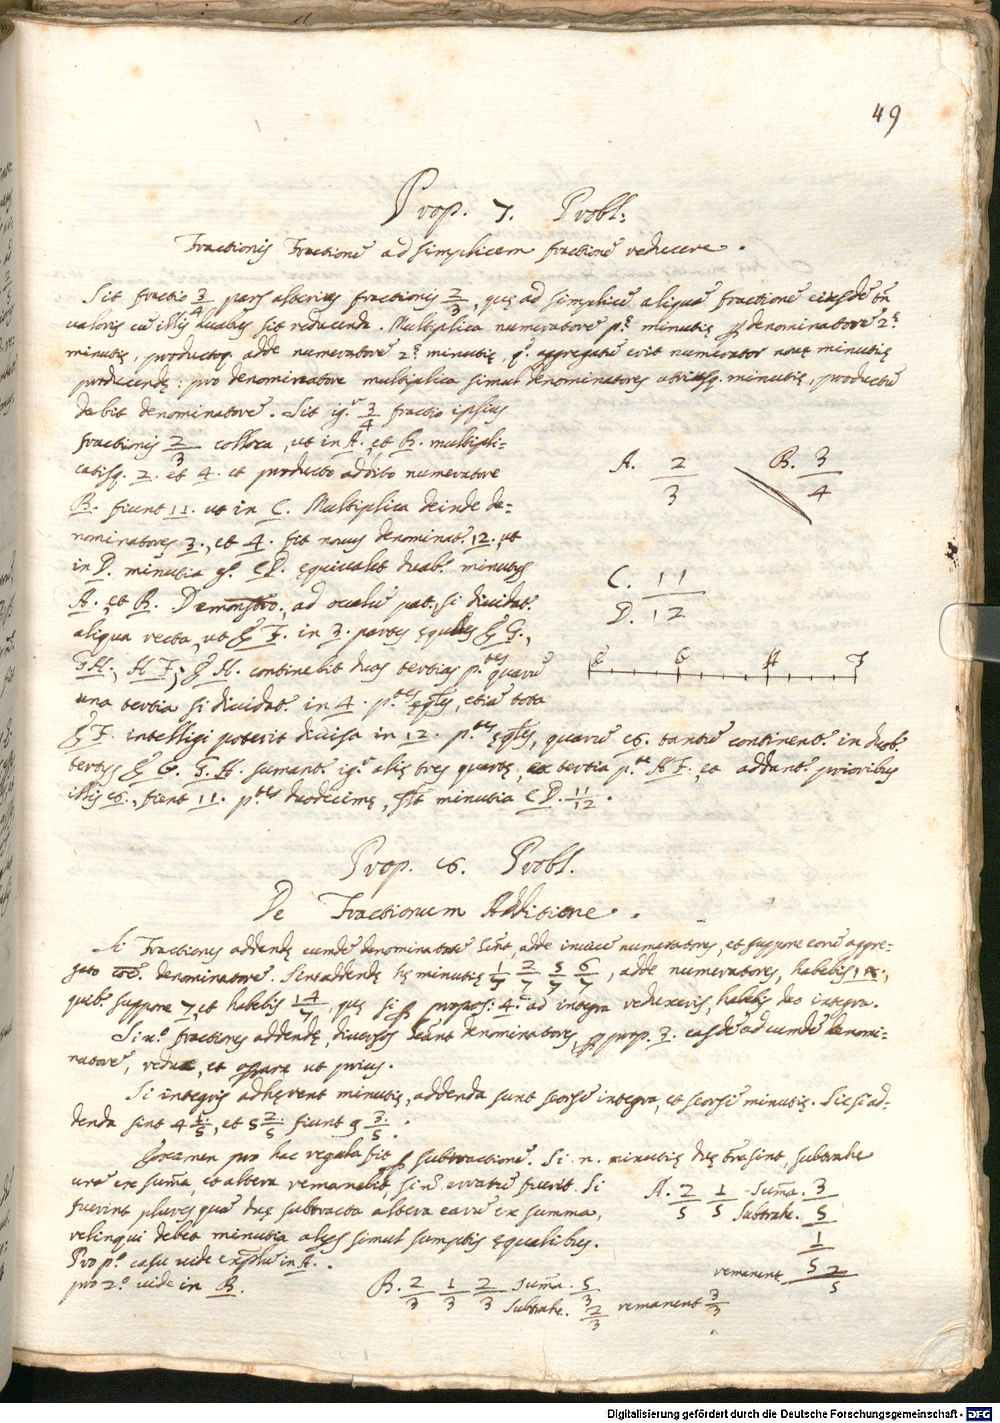 49
Prop. 7. Probl:
Fractionis Fractionē ad simplicem fractionē reducere.
Sit fractio 3/4 pars alterius fractionis 2/3, quę ad simplicē aliquā fractionē eiusdē tñ
valoris cū illis duabus sit reducenda. Multiplica numeratorē pę minutię ꝑ denominatorē 2ę
minutię, productoq. adde numeratorē 2ę minutię, q. aggregatū erit numerator novę minutię
producendę: pro denominatore multiplica simul denominatores utriusq. minutię, productū
dabit denominatorē. Sit igr 3/4 fractio ipsius
fractionis 2/3 colloca, ut in A. et B. multipli-
catisq. 2. et 4. et producto addito numeratore
B. fiunt 11. ut in C. Multiplica deinde de-
nominatores 3., et 4. fit novus denominat. 12. ut
in D. minutia g. CD. equivalet duab. minutijs
A. et B. Demonstro, ad oculū pat. si dividat.
aliqua recta, ut E F. in 3. partes ęquales E G.,
G H., H F; E H. continebit duas tertias p.tes quarū
una tertia si dividat. in 4. p.tes ęqles, etiā tota
E F. intelligi poterit divisa in 12. p.tes ęqles, quarū 8. tantū continent. in duob.
tertijs E G. G. H. sumant. igr alię tres quartę, ex tertia p.te H F. et addant. prioribus
illis 8., fient 11. p.tes duodecimę, st minutia C D. 11/12.
A. 2/3 B. 3/4
C. 11
D. 12
E G H F
Prop. 8. Probl.
De Fractionum Additione.
Si Fractiones addendę eundē denominatorē sint, adde invicē numeratores, et suppone eorū aggre-
gato coē. denominatorē. Sint addendę hę minutię 1/7 2/7 5/7 6/7, adde numeratores, habebis 14.,
quib. suppone 7, et habebis 14/7, quę si ꝑ propos: 4. ad integra reduxeris, habebis duo integra.
Si n.o fractiones addendę, diversos habeant denominatores, ꝑ prop. 3. easdē ad eundē denomi-
natorē, reduc, et operare ut prius.
Si integris adhęrent minutię, addenda sunt seorsī integra, et seorsī minutię. Sic si ad-
denda sint 4 1/5, et 5 2/5 fiunt 9 3/5.
Examen pro hac regula fit ꝑ subtractionē. Si n. minutię duę tm sint, subtrahe
unā ex sum̄a, et altera remanebit, si n. erratū fuerit. Si
fuerint plures quā duę subtracta altera earū ex summa,
relinqui debet minutia alijs simul sumptis ęqualibus.
Pro p.o casu vide exmplū in A.
pro 2.o vide in B.
A. 2/5 1/5 Sum̄a. 3/5
Subtrahe. 1/5
remanent 2/5
B. 2/3 1/3 2/3 Sum̄a. 5/3
Subtrahe. 2/3 remanent 3/3
Digitalisierung gefördert durch die Deutsche Forschungsgemeinschaft - DFG